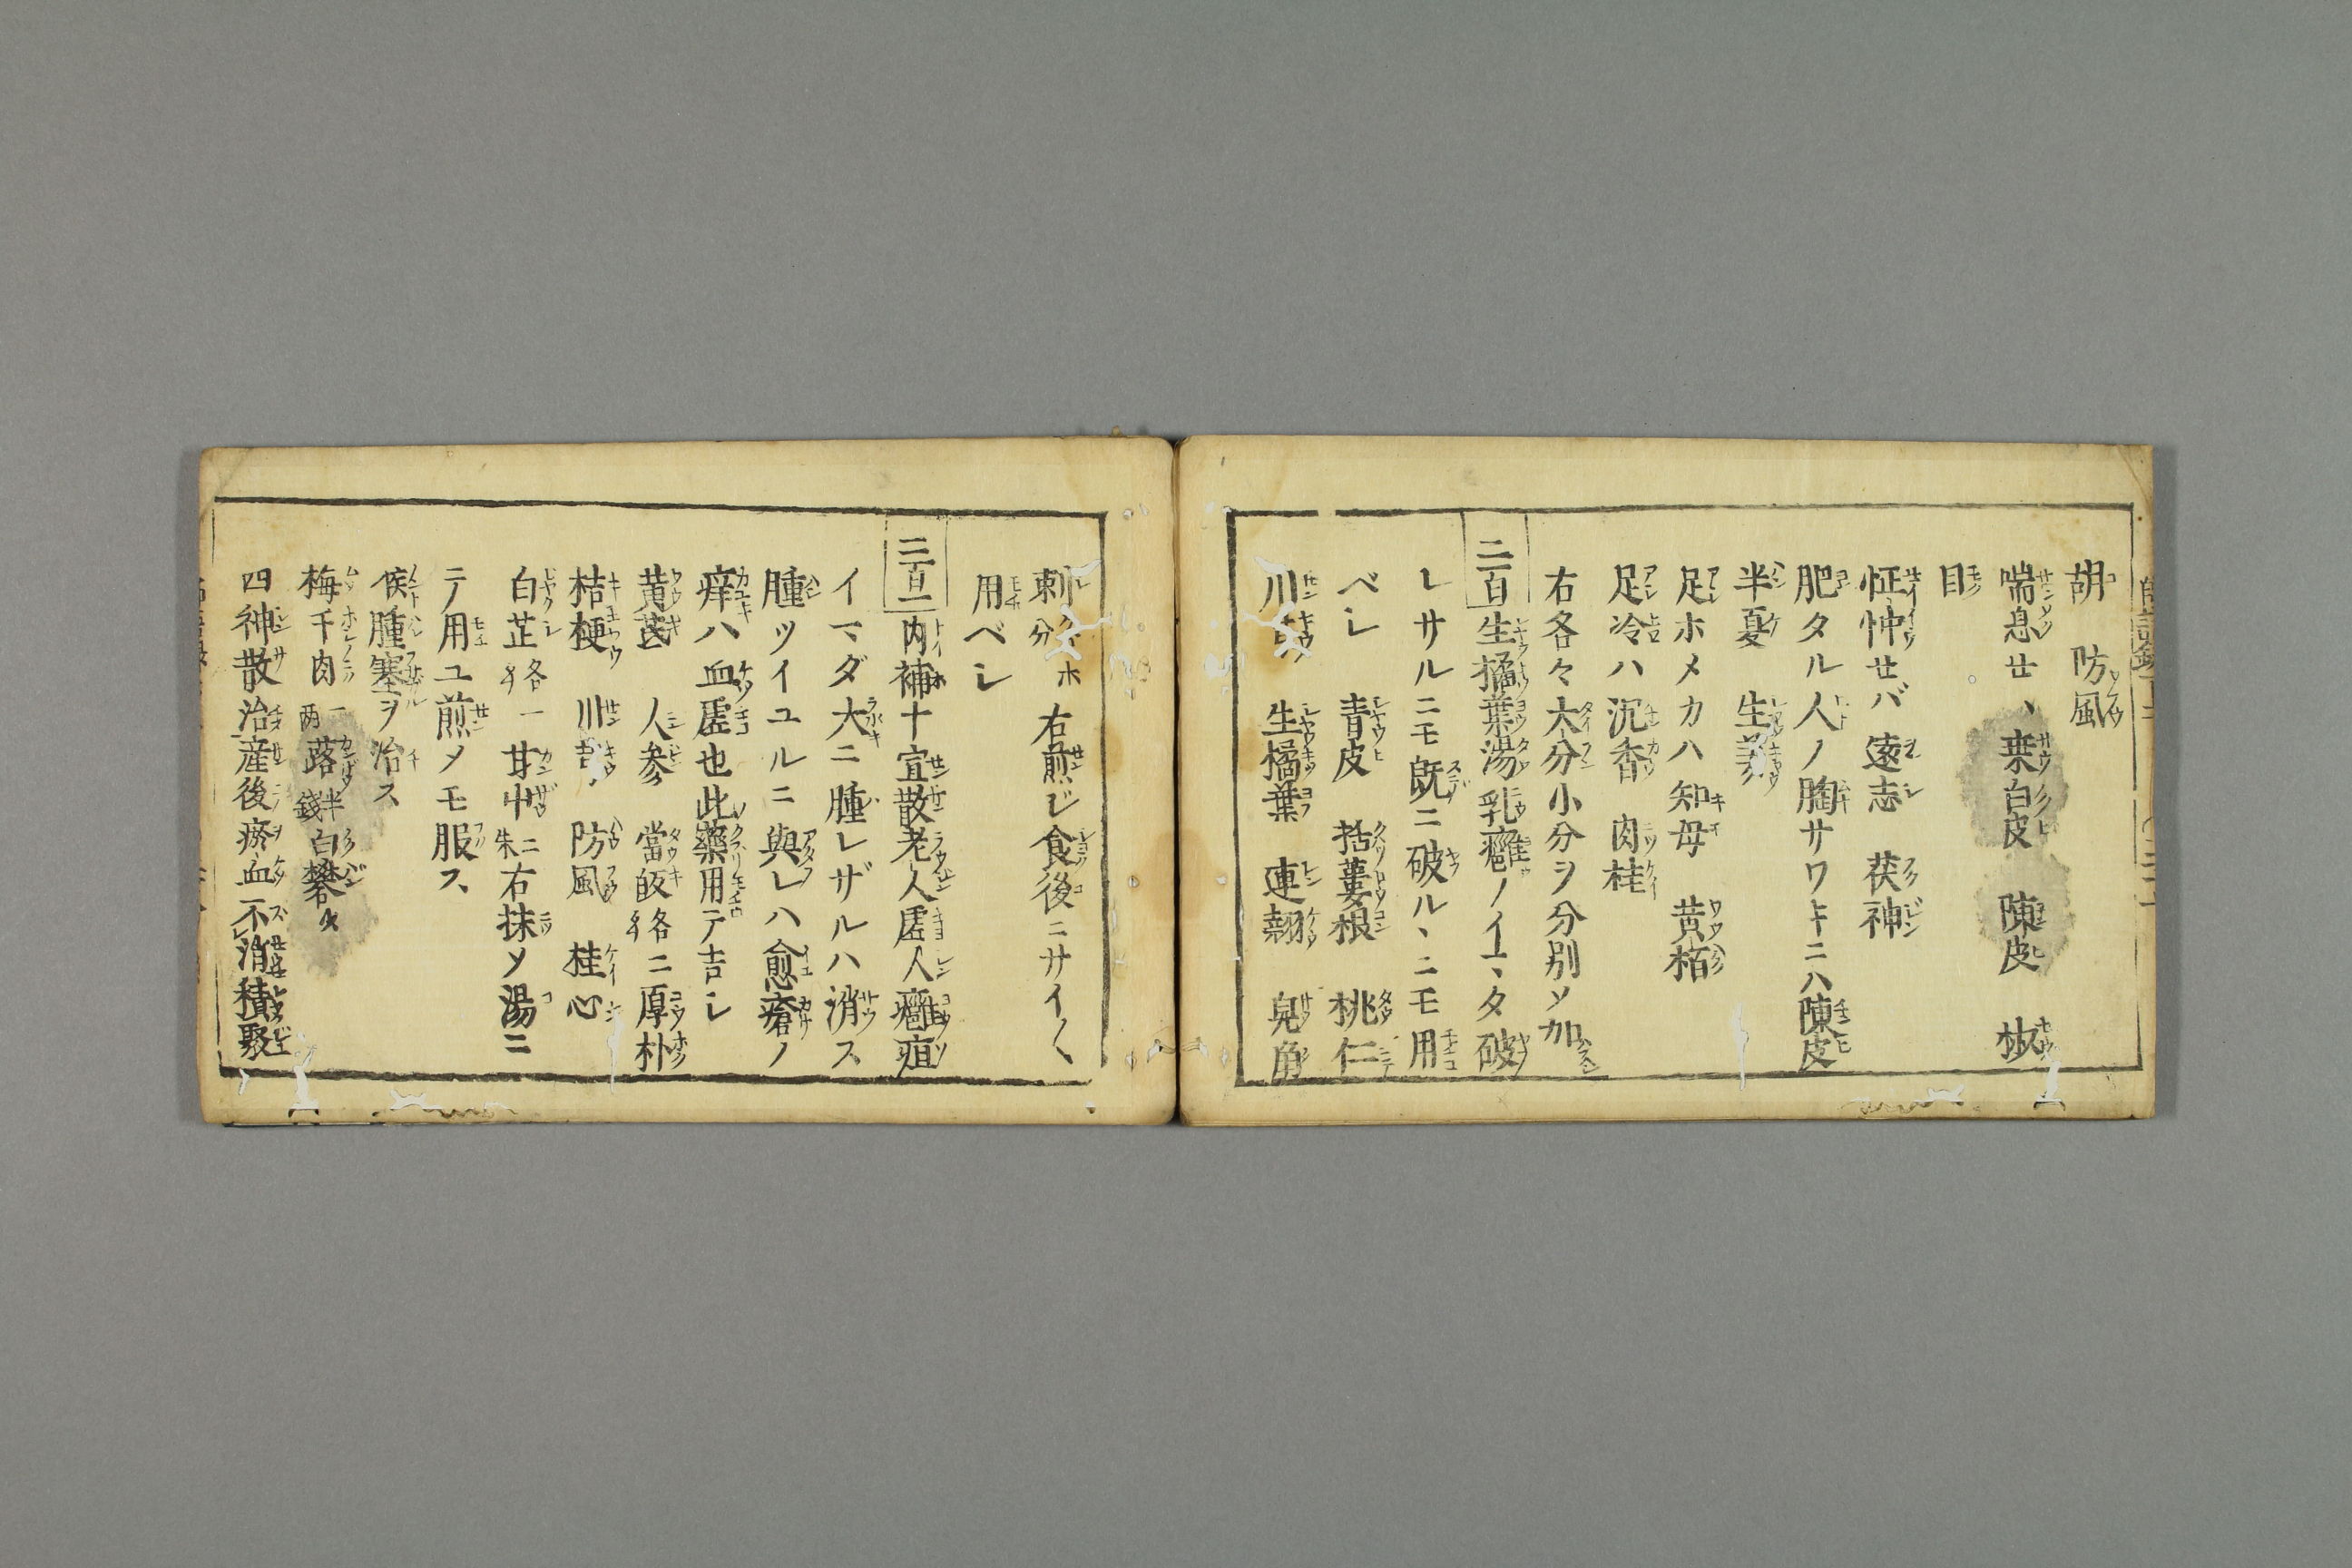 胡　防風
喘息せ、桒白皮　陳皮　椒
目
怔忡せバ遠志　茯神
肥タル人ノ胸サワキニハ陳皮
半夏　生姜
足ホメカハ知母　黄栢
足冷ハ沉香　肉桂
右各々大分小分ヲ分別ソ加
二百生橘葉湯乳癰ノイマタ破
レサルニモ既ニ破ル、ニモ用
ベレ　青皮　括蔞根　桃仁
川　生橘葉　連翹　皂角
刺分　右煎ジ食後ニサイ〱
用ベレ
二百一内補十宣散老人虚人癰疽
イマダ大ニ腫レザルハ消ス
腫ツイユルニ與レハ愈瘡ノ
痒ハ血虚也此藥用テ吉レ
黄芪　人参　當皈各ニ厚朴
桔梗　川　防風　桂心
白芷各一　甘艸ニ朱右抹ソ湯ニ
テ用ユ煎メモ服ス
喉腫塞ヲ治ス
梅干肉一两　蕗半錢　白礬
四神散治産後瘀血不消積聚